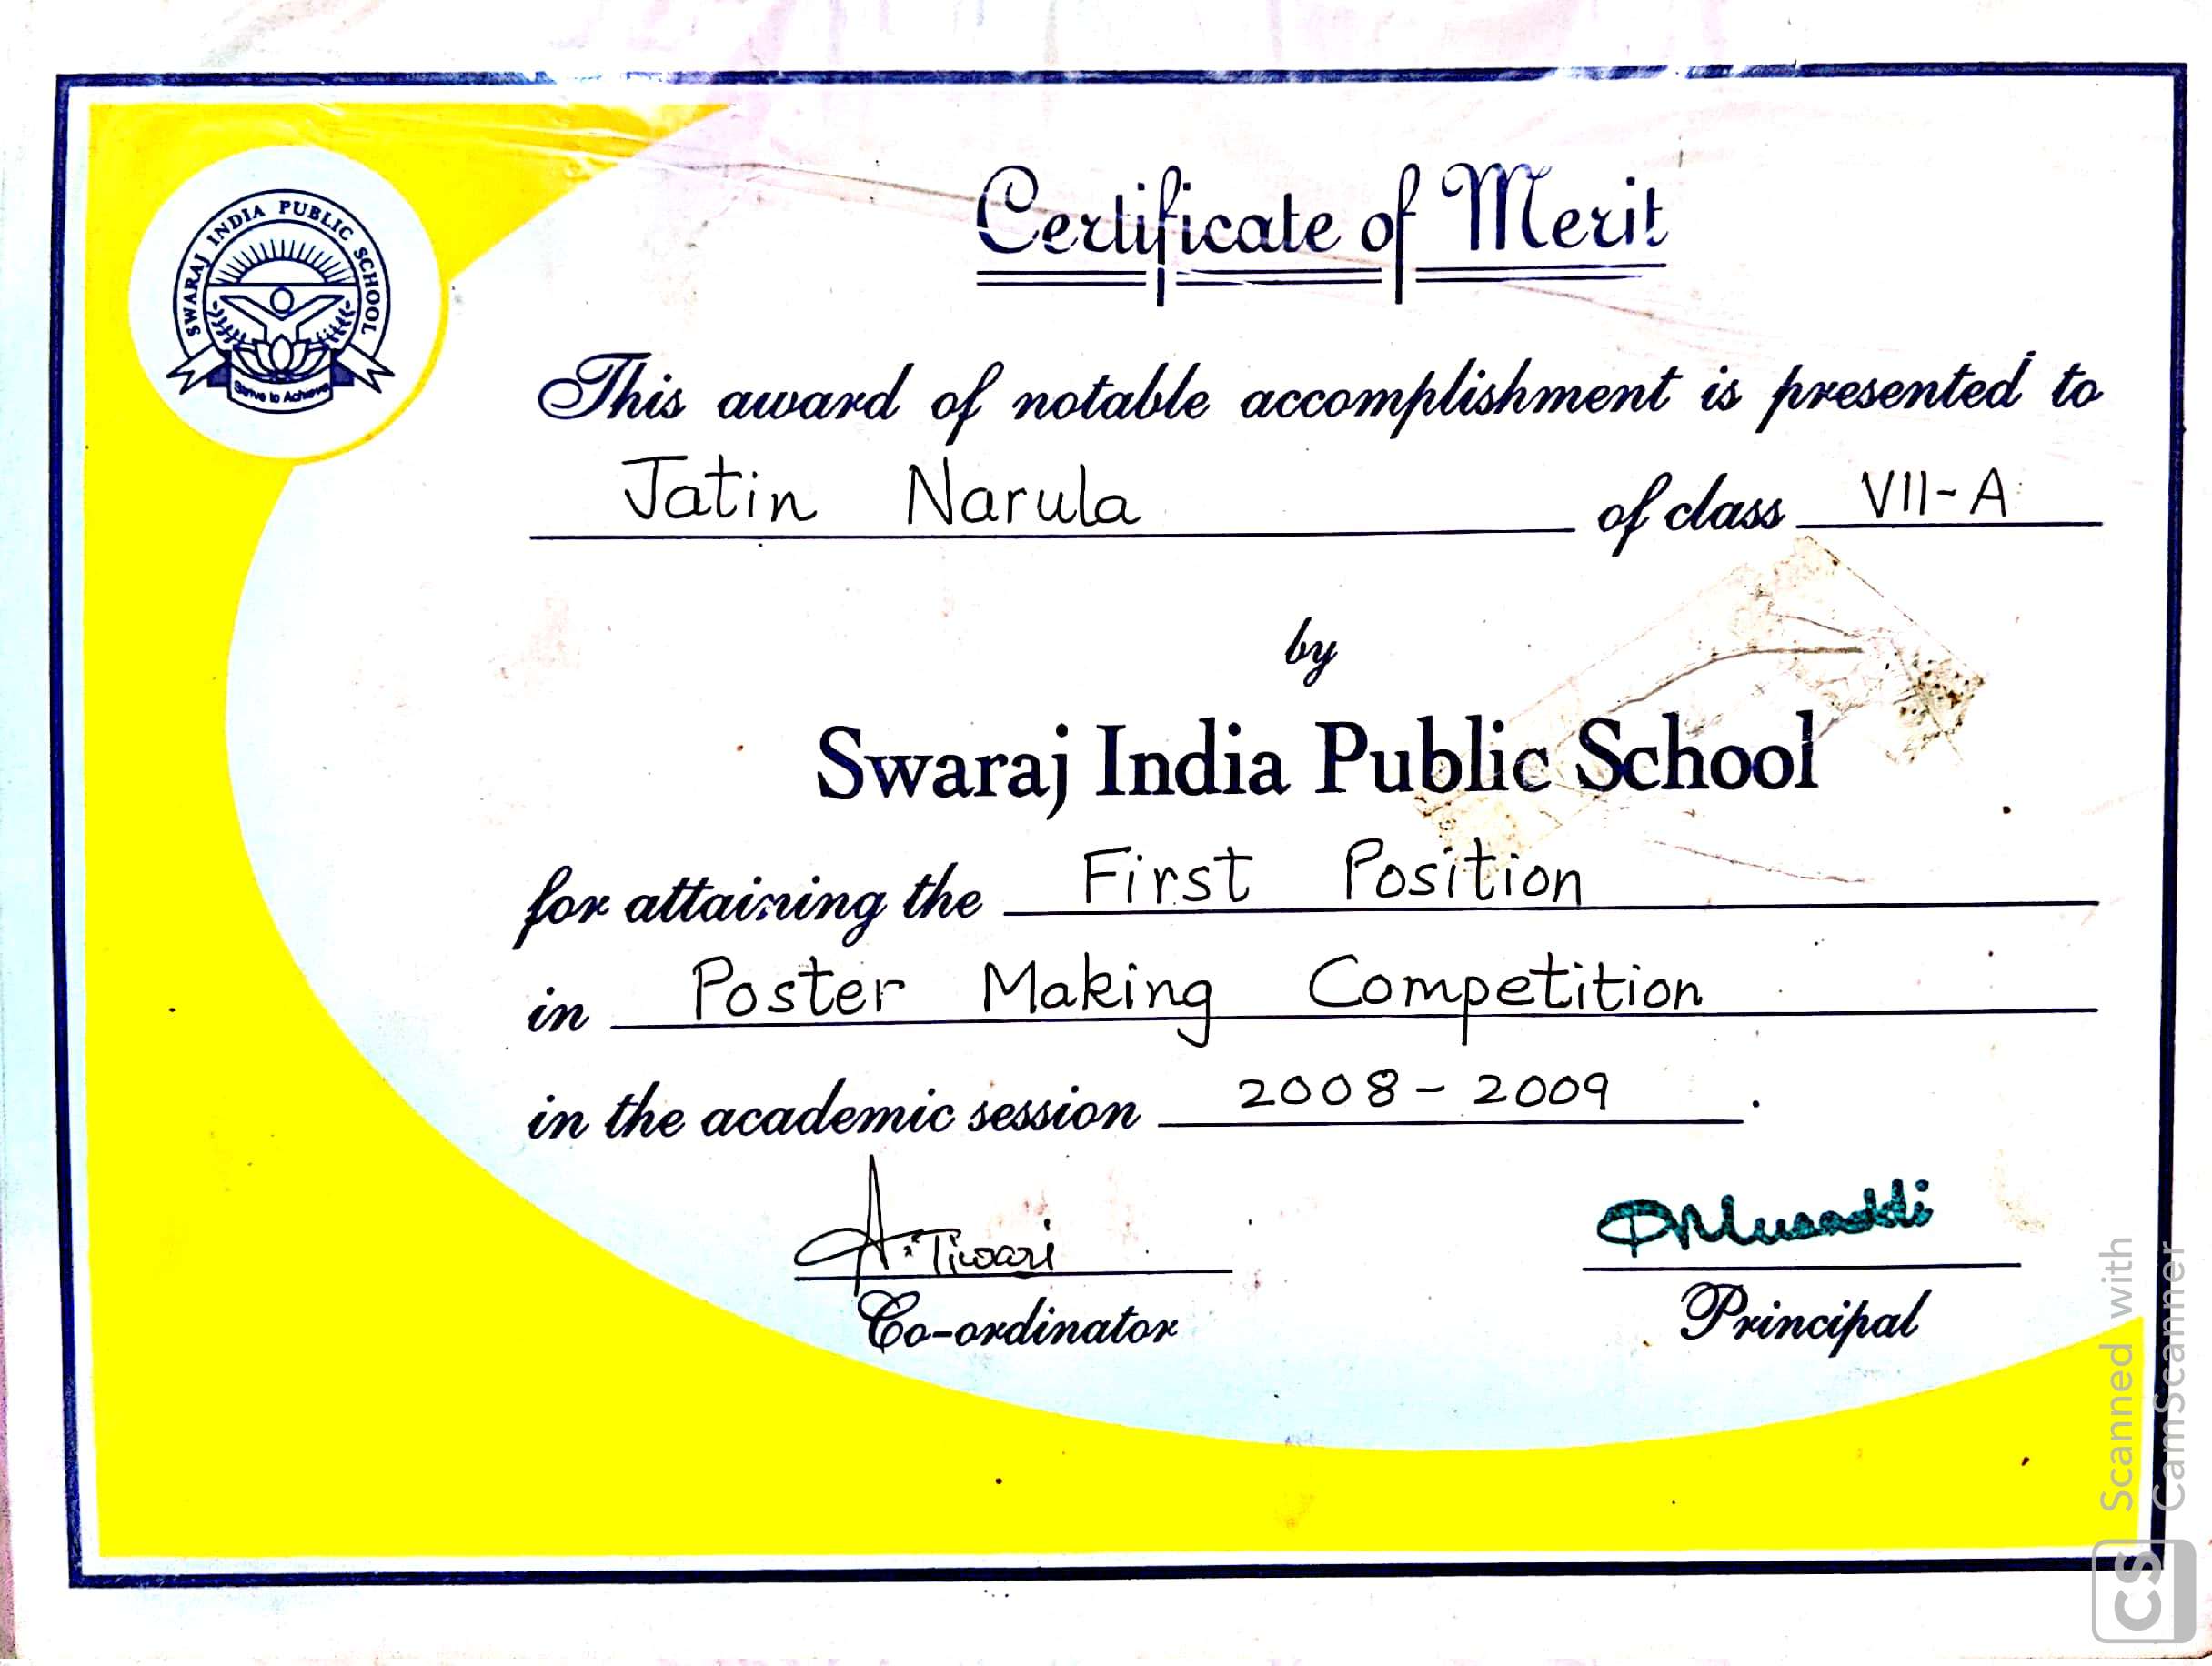 SWARAJ INDIA PUBLIC SCHOOL
Strive to Achieve
Certificate of Merit
This award of notable accomplishment is presented to
Jatin Narula of class VII-A
by
Swaraj India Public School
for attaining the First Position
in Poster Making Competition
in the academic session 2008-2009.
A. Tiwari
Co-ordinator
Principal
Scanned with
CamScanner
CS